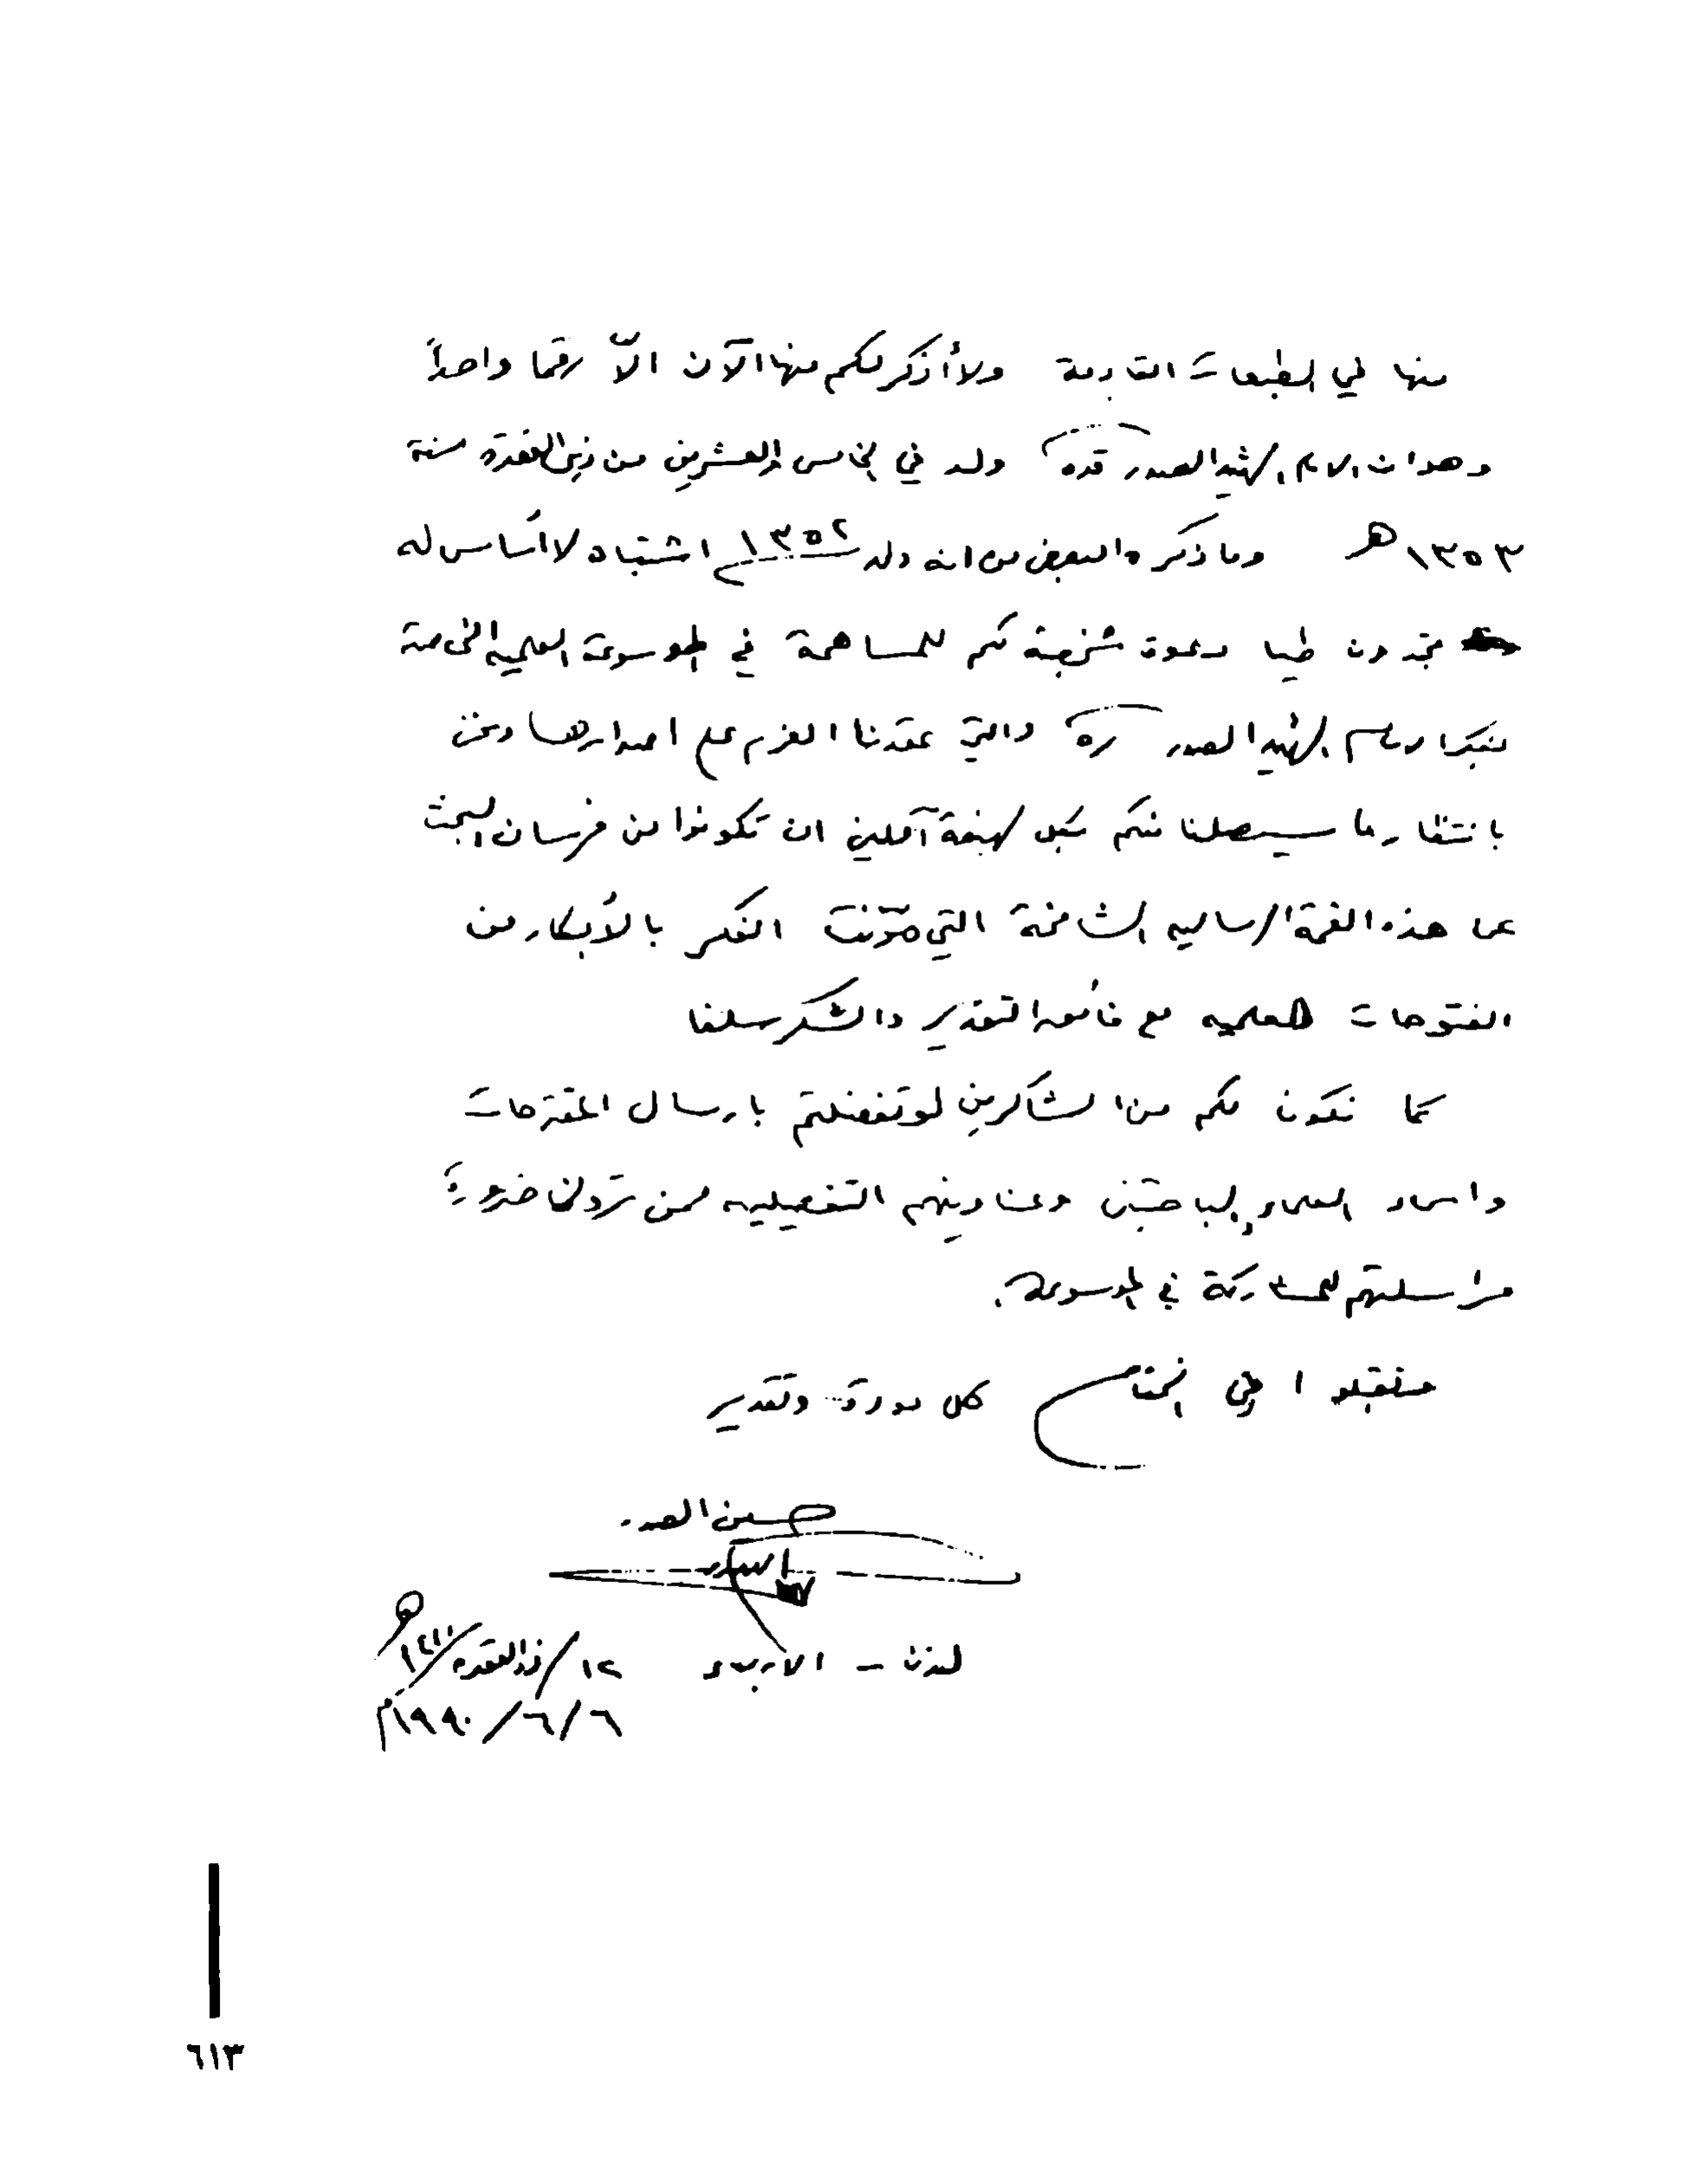 منها في الطبعات القادمة ولا أذكر لكم منها الآن الاّ رقما واحداً
وهو ان الامام الشهيد الصدر قده ولد في الخامس والعشرين من ذي القعدة سنة
١٣٥٣ هـ وما ذكره البعض من انه ولد ١٣٥٢ اشتباه لا أساس له
تجدون طيا دعوة شخصية لكم للمساهمة في الموسوعة العلمية الخاصة
بفكر الامام الشهيد الصدر ره والتي عقدنا العزم على اصدارها ونحن
بانتظار ما سيصلنا منكم بكل لهفة آملين ان تكونوا من فرسان البحث
عن هذه القمة الرسالية الشامخة التي موّنت الفكر بالأبكار من
الفتوحات العلميه مع فائق التقدير والشكر سلفا
كما نكون لكم من الشاكرين لو تفضلتم بارسال المقترحات
واسماء العلماء والباحثين وعناوينهم التفصيليه ممن ترون ضرورة
مراسلتهم للمشاركة في الموسوعة.
وتقبلوا في الختام كل مودة وتقدير
حسين الصدر
لندن – الاربعاء ١٢/ذي القعدة/١٤١١ هـ
٦/٦/١٩٩٠م
٦١٣